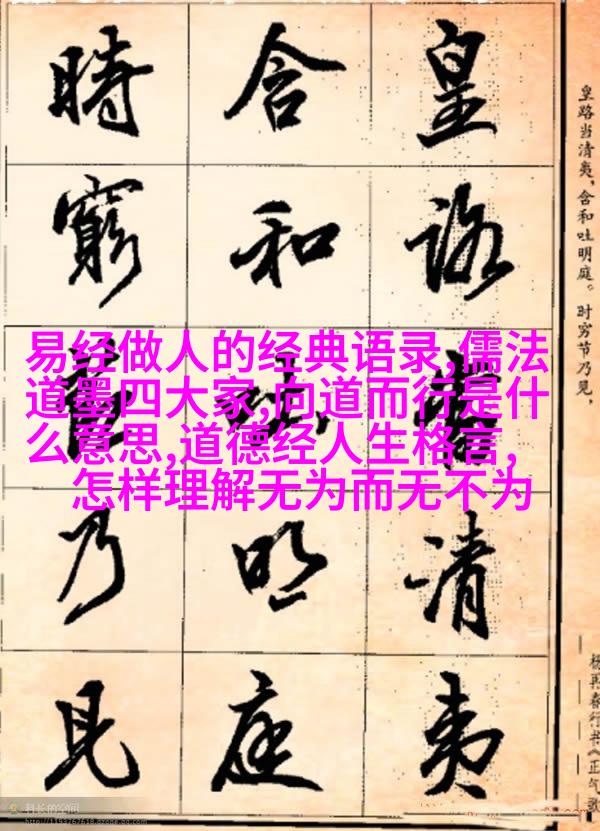 皇路當清夷
含和吐明庭
時窮節乃見
皇路当清夷，含和吐明庭。时穷节乃见，
杨再春行书《正气歌
易经做人的经典语录,儒法
道墨四大家,向道而行是什
么意思,道德经人生格言,
怎样理解无为而无不为
科长的空间